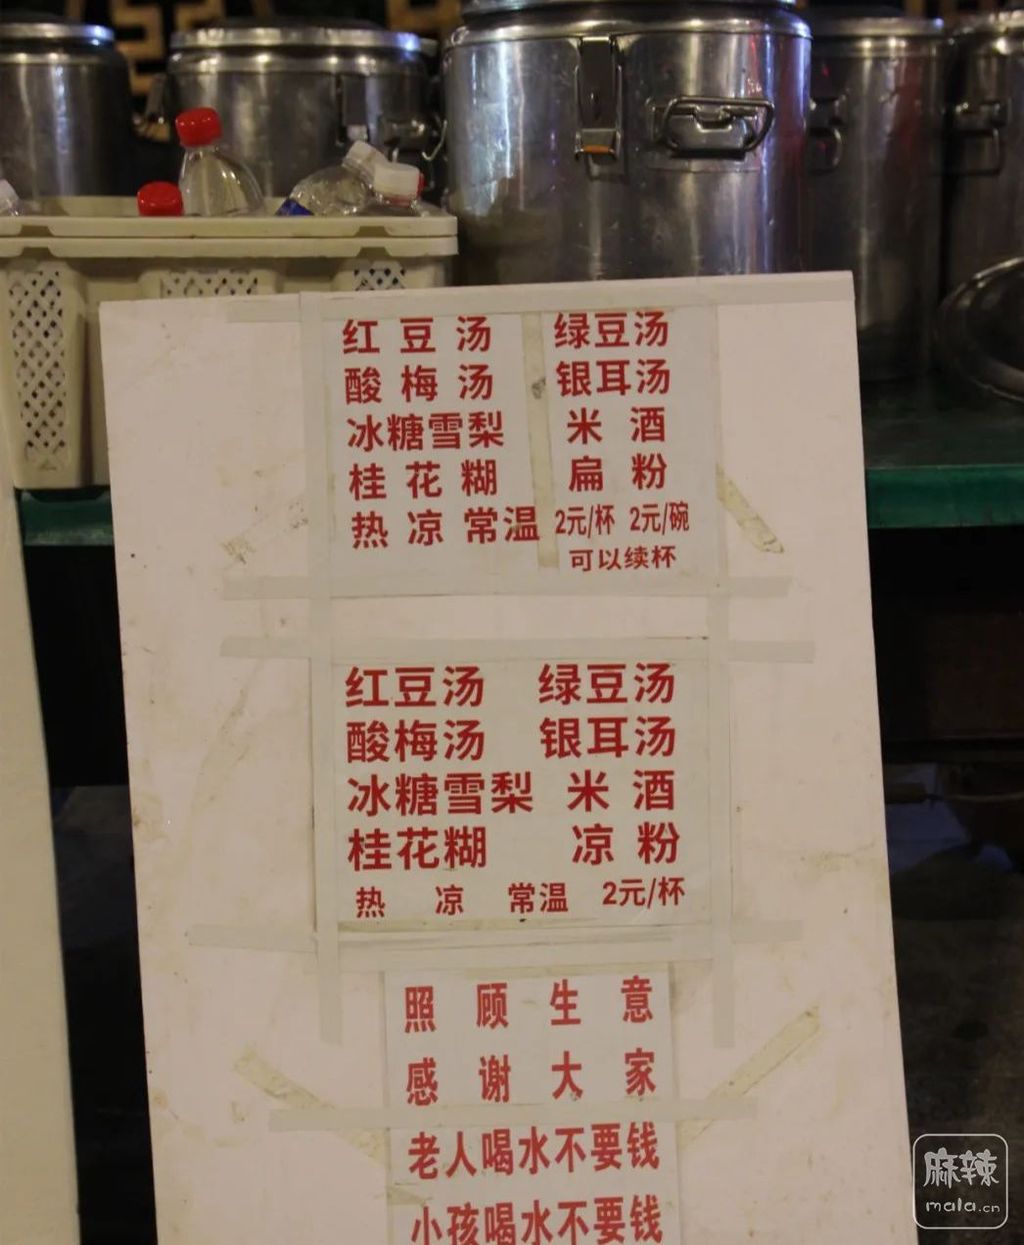 红豆汤 绿豆汤
酸梅汤 银耳汤
冰糖雪梨 米酒
桂花糊 扁粉
热 凉 常温 2元/杯 2元/碗
可以续杯
红豆汤 绿豆汤
酸梅汤 银耳汤
冰糖雪梨 米酒
桂花糊 凉粉
热 凉 常温 2元/杯
照顾生意
感谢大家
老人喝水不要钱
小孩喝水不要钱
麻辣
mala.cn